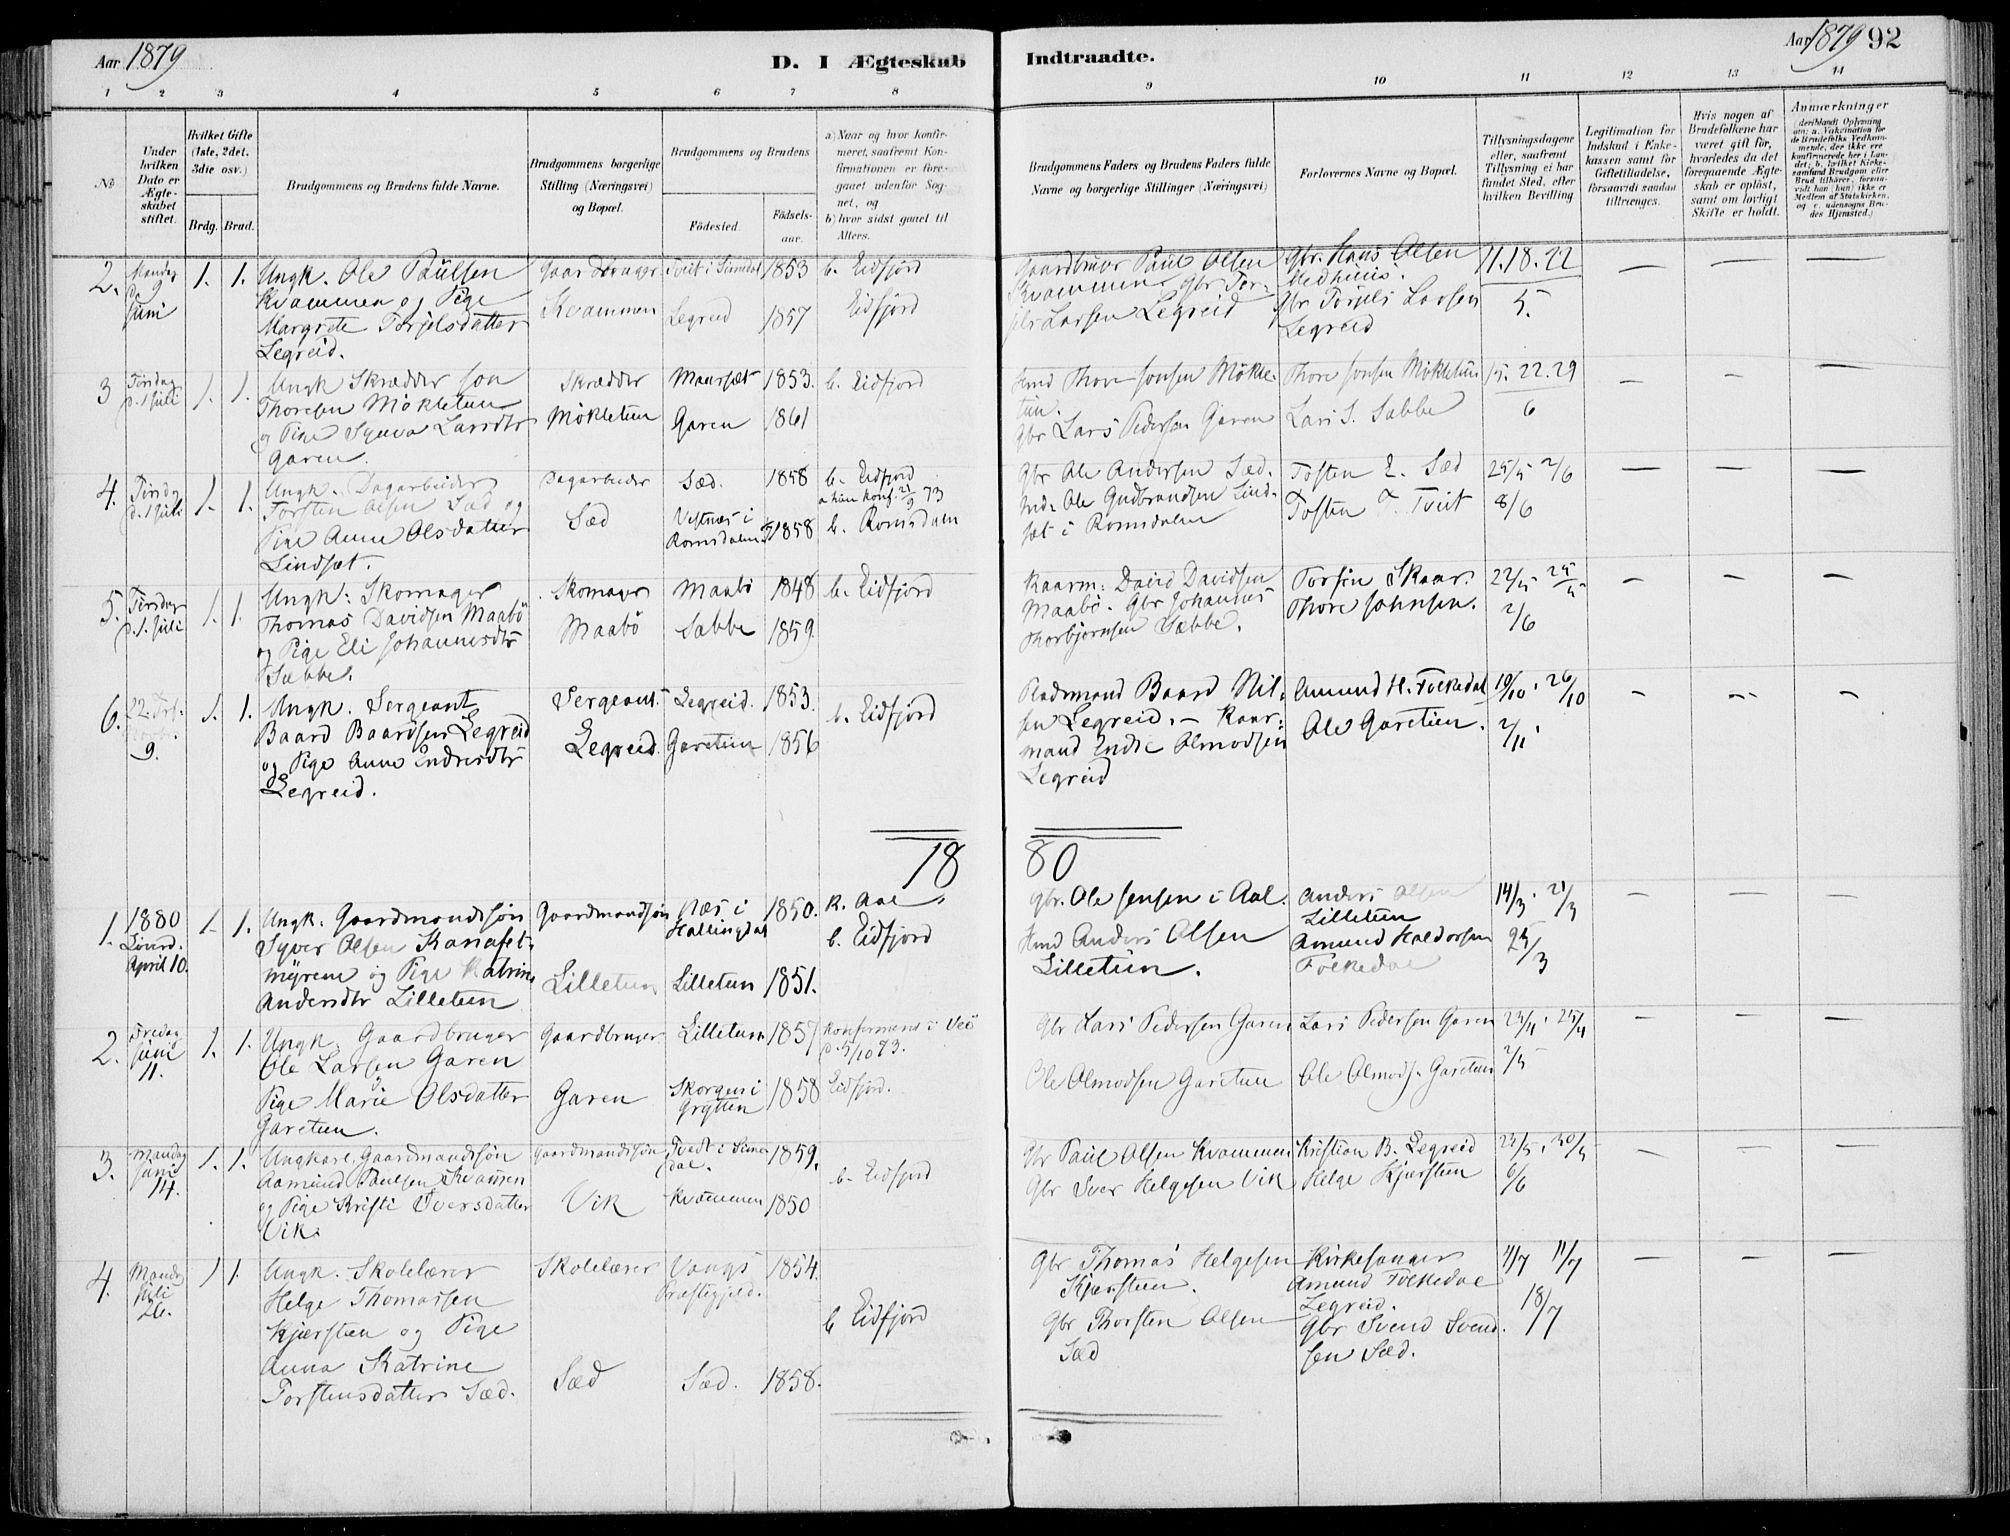 Aar 1879
D. I Ægteskab Indtraadte.
Aar 1879 92
1 2 3 4 5 6 7 8 9 10 11 12 13 14
No
Under hvilken Dato er Ægteskabet stiftet.
Hvilket Gifte (1ste, 2det, 3die osv.)
Brdg. Brud.
Brudgommens og Brudens fulde Navne.
Brudgommens borgerlige Stilling (Næringsvei) og Bopæl.
Brudgommens og Brudens
Fødested.
Fødselsaar.
a) Naar og hvor Konfirmeret, saafremt Konfirmationen er foregaaet udenfor Sognet, og
b) hvor sidst gaaet til Alters.
Brudgommens Faders og Brudens Faders fulde Navne og borgerlige Stillinger (Næringsvei)
Forlovernes Navne og Bopæl.
Tillysningsdagene eller, saafremt Tillysning ei har fundet Sted, efter hvilken Bevilling
Legitimation for Indskud i Enkekassen samt for Giftetilladelse, forsaavidt saadan tiltrænges.
Hvis nogen af Brudefolkene har været gift før, hvorledes da det foregaaende Ægteskab er opløst, samt om lovligt Skifte er holdt.
Anmærkninger
(deriblandt Oplysning om: a. Vakcination for de Brudefolks Vedkommende, der ikke ere konfirmerede her i Landet; b. hvilket Kirkesamfund Brudgom eller Brud tilhører, forsaavidt han (hun) ikke er Medlem af Statskirken, og c. udensogns Brudes Hjemsted.)
2. Mandag 9 Juni 1. 1. Ungk. Ole Paulsen Gaardbruger Tveit i Simedal 1853 b. Eidfjord
Kvammen og Pige Kvammen Legreid 1857 Eidfjord
Margrete Torjelsdatter
Legreid.
Gaardbruer Paul Olsen Gbr. Hans Olsen 11. 18. 22
Kvammen, Gbr Tor- Medhus. 5.
jels Larsen Legreid Gbr Torjels Larsen
Legreid
3 Tirsdag d. 1 Juli 1. 1. Ungk Skrædder Jon Skrædder Maursæt 1853. b. Eidfjord
Thoresen Møkletun Møkletun Garen 1861
og Pige Synva Larsdtr
Garen.
Hmd Thore Jonsen Møkle- Thore Jonsen Møkletun 15. 22. 29
tun. 6
Gbr Lars Pedersen Garen Lars S. Sabbe
4. Tirsdg d. 1 Juli 1. 1. Ungk. Dagarbeider Dagarbeider Sæd. 1858 b. Eidfjord
Torsten Olsen Sæd og Sæd Vestnæs i Romsdalen 1858 a hun konf. 21/9 73
Pige Anne Olsdatter b. Romsdalen
Lindset.
Gbr Ole Andersen Sæd. Tosten E. Sæd 25/5 2/6
Ind. Ole Gudbrandsen Lind- Tosten T. Tveit 8/6
set i Romsdalen
5. Tirsdag d. 1. Juli 1. 1. Ungk: Skomager Skomager Maabø 1848 b. Eidfjord
Thomas Davidsen Maabø Maabø Sabbe 1859.
og Pige Eli Johannesdtr
Sæbbe.
Kaarm: David Davidsen Torfin Skaar. 22/5 25/5
Maabø. Gbr Johannes Thore Johnsen. 2/6
Thorbjørnsen Sæbbe.
6. 22. 9. 1. 1. Ungk. Sergeant Sergeant Legreid. 1853. b. Eidfjord
Baard Baardsen Legreid Legreid. Garetun 1856
og Pige Anna Endresdtr
Legreid.
Baard Nil- Amund H. Folkedal 19/10. 26/10
sen Legreid. — Kaar- Ole Garetun. 2/11.
mand Endre Olmodsen
Legreid
18 80
1. 1880 Løverd. April 10. 1. 1. Ungk. Gaardmandssøn Gaardmandssøn Næs i Hallingdal 1850. k. Aal.
Syver Olsen b. Eidfjord
myrene og Pige Katrine Lilletun Lilletun 1851.
Andersdtr Lilletun
Gbr. Ole Jensen i Aal. Anders Olsen 14/3. 21/3
Hmd Anders Olsen Lilletun
Lilletun. Amund Haldorsen 25/3
Folkedal
2. Fredag Juni 11. 1. 1. Ungk. Gaardbruger Gaardbruger Lilletun 1857 Konfirmeret i Veø
Ole Larsen Garen d. 5/10 73.
og
Pige Marie Olsdatter Garen Skorgen i Grytten 1858 Eidfjord.
Garetun.
Gbr Lars Pedersen Garen Lars Pedersen Garen 23/4. 25/4
Ole Olmodsen Garetun Ole Olmods. Garetun 2/5
3. Mandag Juni 14. 1. 1. Ungkarl, Gaardmandssøn Gaardmandssøn Tvedt i Simedal. 1859. b. Eidfjord
Aamund Paulsen Kvammen
og Pige Kristi Iversdatter Vik Kvammen 1850
Vik.
Gbr Paul Olsen Kvammen Kristian B. Legreid 23/5. 30/5
Gbr Iver Helgesen Vik Helge Kjærstun 6/6
4. Mandag Juli 26. 1 1. Ungk. Skolelærer Skolelærer Vangs Præstegjeld. 1854.
Helge Thomassen b Eidfjord
Kjærstun og Pige
Anna Katrine Sæd Sæd. 1858.
Torstensdatter Sæd.
Gbr Thomas Helgesen Kirkesanger 4/7 11/7
Kjærstun. Amund Folkedal
Legreid. 18/7
Gbr Thorsten Olsen Gbr Svend Svend-
Sæd sen Sæd.